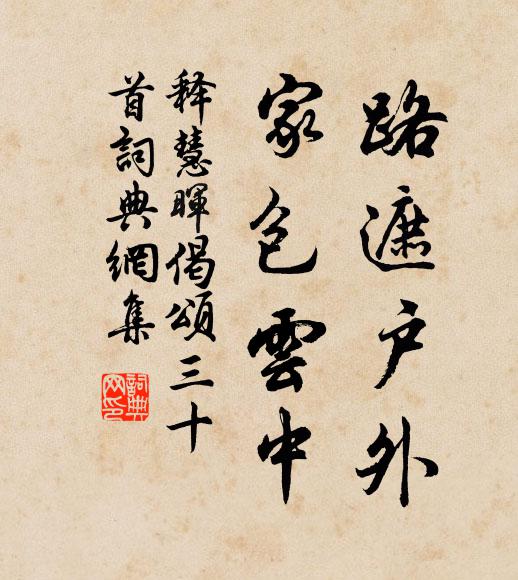 路遮户外
家包雲中
釋慧暉偈頌三十
首詞典網集
詞典網印